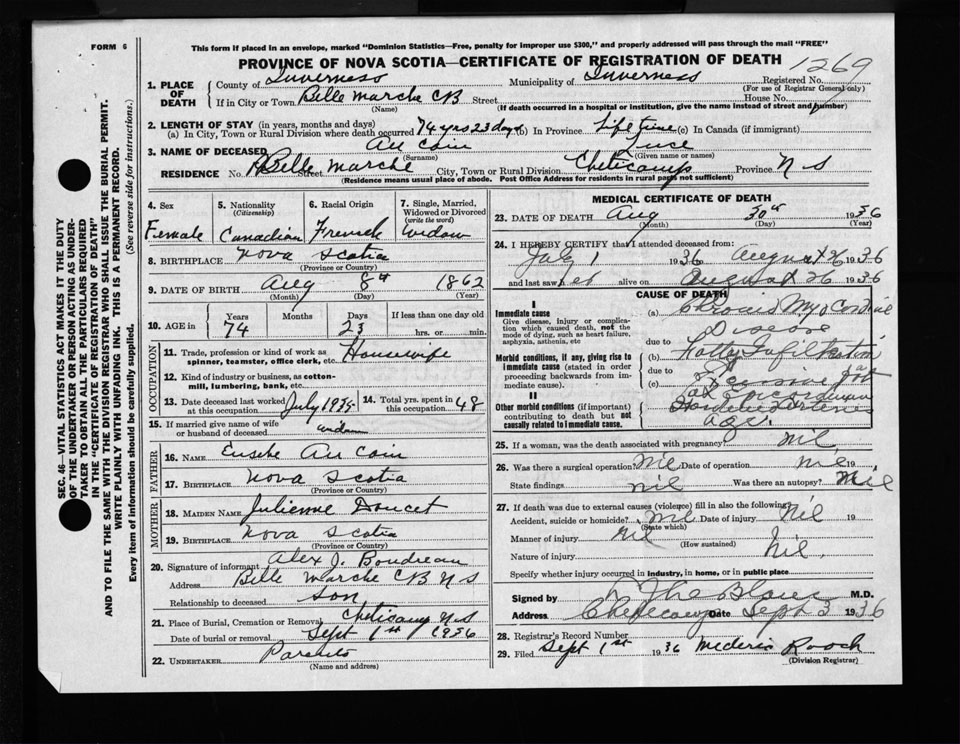 FORM 6
This form if placed in an envelope, marked "Dominion Statistics—Free, penalty for improper use $300," and properly addressed will pass through the mail "FREE"
PROVINCE OF NOVA SCOTIA—CERTIFICATE OF REGISTRATION OF DEATH 1269
SEC. 46—VITAL STATISTICS ACT MAKES IT THE DUTY
OF THE UNDERTAKER OR PERSON ACTING AS UNDER-
TAKER TO OBTAIN ALL THE PARTICULARS REQUIRED
IN THE "CERTIFICATE OF REGISTRATION OF DEATH"
AND TO FILE THE SAME WITH THE DIVISION REGISTRAR WHO SHALL ISSUE THE BURIAL PERMIT.
WRITE PLAINLY WITH UNFADING INK. THIS IS A PERMANENT RECORD.
Every item of information should be carefully supplied. (See reverse side for instructions.)
1. PLACE OF DEATH
County of Inverness Municipality of Inverness Registered No.
(For use of Registrar General only)
If in City or Town Belle Marche CB Street House No.
(Name) (If death occurred in a hospital or institution, give the name instead of street and number)
2. LENGTH OF STAY (in years, months and days)
(a) In City, Town or Rural Division where death occurred 74 yrs 23 days (b) In Province Life time (c) In Canada (if immigrant)
3. NAME OF DECEASED Au Coin Luce
(Surname) (Given name or names)
RESIDENCE No. Belle Marche Street City, Town or Rural Division Cheticamp Province N S
(Residence means usual place of abode. Post Office Address for residents in rural parts not sufficient)
4. Sex 5. Nationality (Citizenship) 6. Racial Origin 7. Single, Married, Widowed or Divorced (write the word)
Female Canadian French Widow
8. BIRTHPLACE Nova Scotia
(Province or Country)
9. DATE OF BIRTH Aug 8th 1862
(Month) (Day) (Year)
10. AGE in Years Months Days If less than one day old
74 23 hrs. or min.
OCCUPATION
11. Trade, profession or kind of work as spinner, teamster, office clerk, etc. Housewife
12. Kind of industry or business, as cotton-mill, lumbering, bank, etc.
13. Date deceased last worked at this occupation July 1935 14. Total yrs. spent in this occupation 48
15. If married give name of wife or husband of deceased widow
FATHER
16. NAME Au Coin
17. BIRTHPLACE Nova Scotia
(Province or Country)
MOTHER
18. MAIDEN NAME Julienne Doucet
19. BIRTHPLACE Nova Scotia
(Province or Country)
20. Signature of informant Alex J. Boudreau
Address Belle Marche CB N S
Relationship to deceased Son
21. Place of Burial, Cremation or Removal Cheticamp N S
Date of burial or removal Sept 1st 1936
22. UNDERTAKER
(Name and address)
MEDICAL CERTIFICATE OF DEATH
23. DATE OF DEATH Aug 30th 1936
(Month) (Day) (Year)
24. I HEREBY CERTIFY that I attended deceased from:
July 1 1936 August 26 1936
and last saw her alive on August 26 1936
CAUSE OF DEATH
I
Immediate cause
Give disease, injury or complication which caused death, not the mode of dying, such as heart failure, asphyxia, asthenia, etc
(a) Chronic Myocardial
Disease
due to
Morbid conditions, if any, giving rise to immediate cause (stated in order proceeding backwards from immediate cause).
(b) Fatty Infiltration
due to
(c)
II
Other morbid conditions (if important) contributing to death but not causally related to immediate cause.
age
25. If a woman, was the death associated with pregnancy? Nil
26. Was there a surgical operation? Nil Date of operation Nil 19
State findings nil Was there an autopsy? Nil
27. If death was due to external causes (violence) fill in also the following:
Accident, suicide or homicide? Nil Date of injury Nil 19
(State which)
Manner of injury Nil
(How sustained)
Nature of injury Nil.
Specify whether injury occurred in industry, in home, or in public place
Signed by M.D.
Address Cheticamp Date Sept 3 1936
28. Registrar's Record Number
29. Filed Sept 1st 1936 Mederic Roach
(Division Registrar)